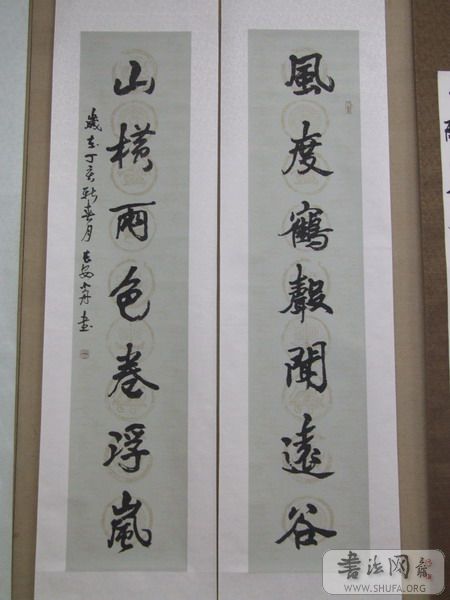 風度鶴聲聞遠谷
山橫雨色卷浮嵐
歲在丁亥新春月長安
書法网
WWW.SHUFA.ORG